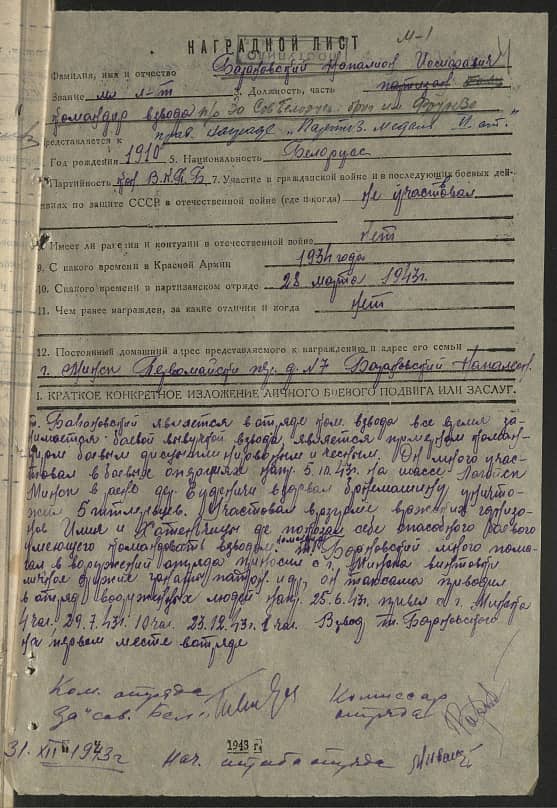 М-1
НАГРАДНОЙ ЛИСТ
Фамилия, имя и отчество Барановский Напалион Иосифович
Звание мл л-т 3. Должность, часть партизан
командир взвода п/о За Сов Белорусь бриг им Фрунзе
Представляется к прав. награде „Партиз. медаль II ст."
Год рождения 1910 5. Национальность Белорусс
Партийность кан В.К.П.Б 7. Участие в гражданской войне и в последующих боевых дей-
ствиях по защите СССР в отечественной войне (где и когда) не участвовал
8. Имеет ли ранения и контузии в отечественной войне нет
9. С какого времени в Красной Армии 1934 года
10. С какого времени в партизанском отряде 28 марта 1943г.
11. Чем ранее награжден, за какие отличия и когда нет
12. Постоянный домашний адрес представляемого к награждению и адрес его семьи
г. Минск Первомайски д. N 7 Барановский Напалион
I. КРАТКОЕ КОНКРЕТНОЕ ИЗЛОЖЕНИЕ ЛИЧНОГО БОЕВОГО ПОДВИГА ИЛИ ЗАСЛУГ.
т. Барановский является в отряде ком. взвода все время за-
нимается боевой выручкой взвода, является примерном коман-
диром боевым дисциплинированым и чесным. Он много участ-
вовал в боевых операциях напр. 5.10.43г. на шассе Логойск
Минск в раене дер. взорвал бронемашину уничто-
жил 5 гитлеровцев. Участвовал в разгроме вражких гарнизо-
нов Илия и Хотенчицы где показал себе способного боевого
умеющего командовать взводом. т. Барановский много помо-
гал в воружении отряда приносил с г. Минска винтовки
личное оружие гранат патрон. и др, он таксама приводил
в отряд вооруженных людей нап. 25.6.43г. привел с г. Минска
4 чел. 29.7.43г. 10 чел. 23.12.43г. 8 чел. Взвод т. Барановского
на первом месте вотряде
Ком. отряда Комиссар
За „сов. Бел." отряда
31. XII 1943г 1943 г. Нач. штаба отряда